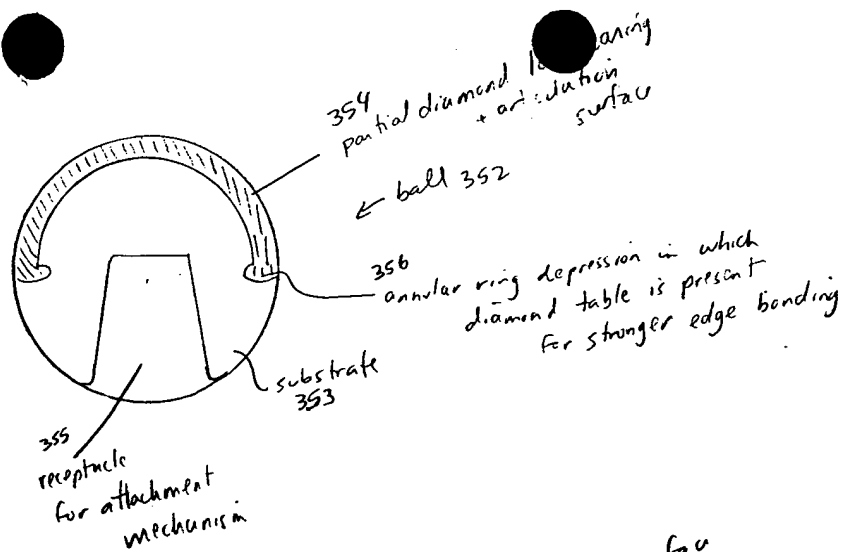 354
partial diamond
+ articulation
surface
ball 352
356
annular ring depression in which
diamond table is present
for stronger edge bonding
substrate
353
355
receptacle
for attachment
mechanism